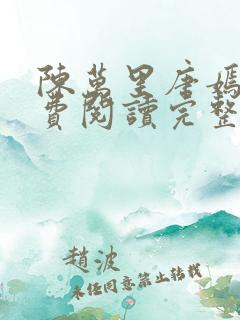 陳萬里唐嫣
費閱讀完整
趙波
未經同意禁止轉載